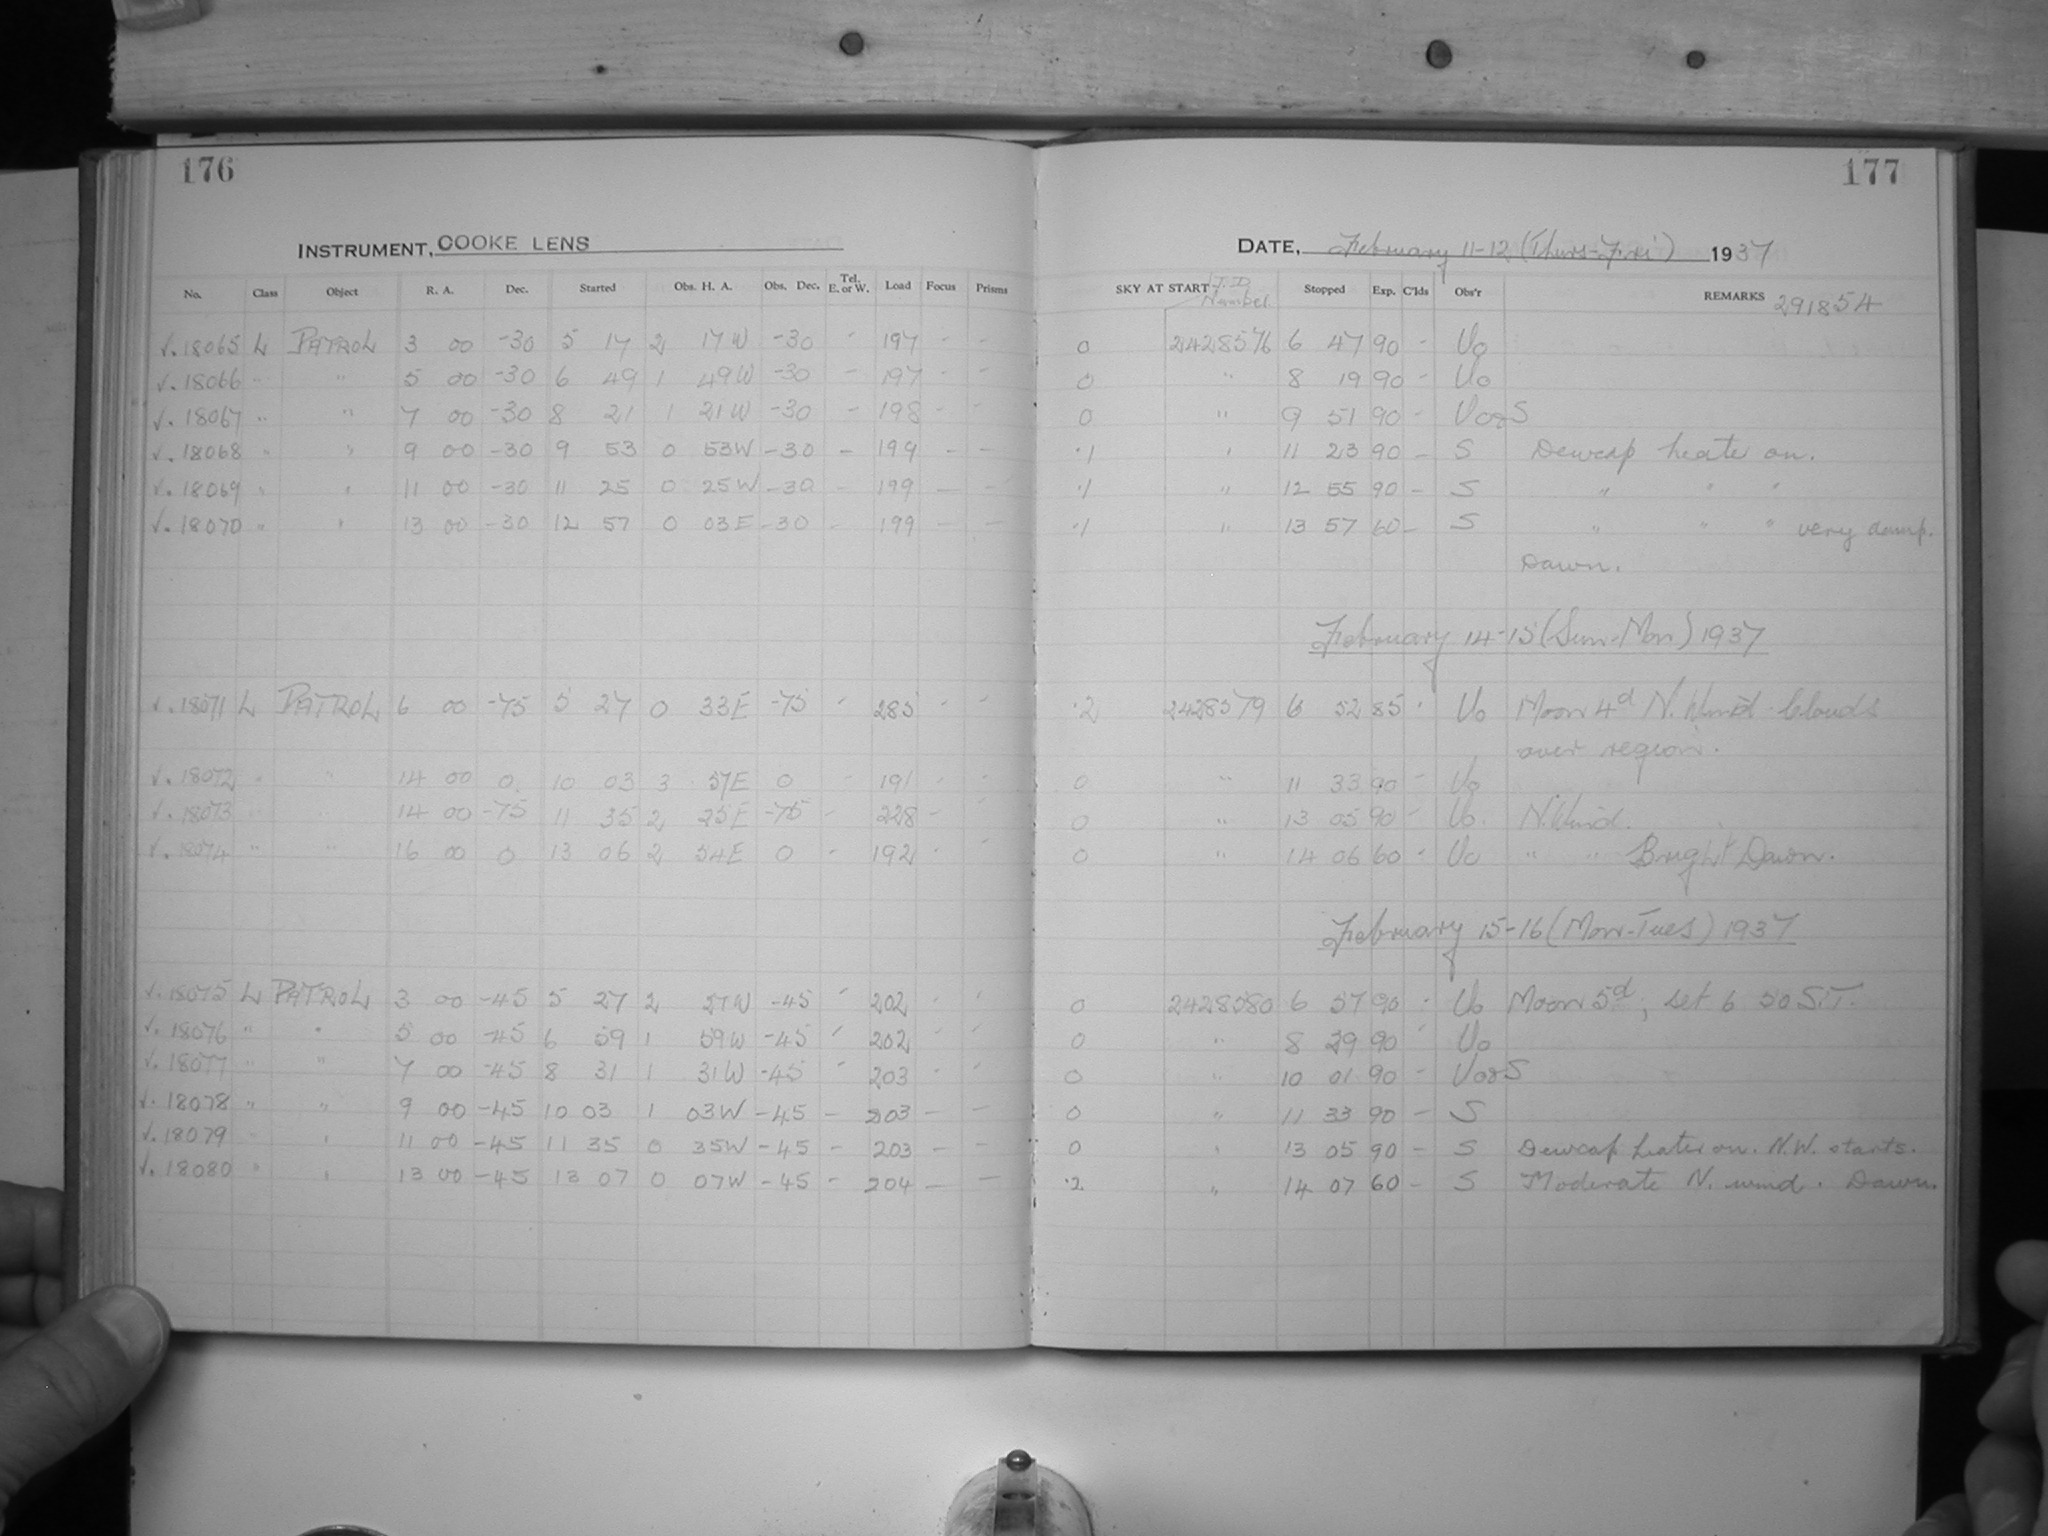 176
177
INSTRUMENT, COOKE LENS
DATE, February 11-12 (Thurs-Fri) 1937
No. Class Object R. A. Dec. Started Obs. H. A. Obs. Dec. Tel. E. or W. Load Focus Prisms SKY AT START J.D. Number Stopped Exp. C'lds Obs'r REMARKS 291854
√. 18065 L PATROL 3 00 -30 5 17 2 17W -30 - 197 - - 0 2428576 6 47 90 - Uo
√. 18066 " " 5 00 -30 6 49 1 49W -30 - 197 - - 0 " 8 19 90 - Uo
√. 18067 " " 7 00 -30 8 21 1 21W -30 - 198 - - 0 " 9 51 90 - Uo&S
√. 18068 " " 9 00 -30 9 53 0 53W -30 - 199 - - ·1 " 11 23 90 - S Dewcap heater on.
√. 18069 " " 11 00 -30 11 25 0 25W -30 - 199 - - ·1 " 12 55 90 - S " " "
√. 18070 " " 13 00 -30 12 57 0 03E -30 - 199 - - ·1 " 13 57 60 - S " " " very damp.
Dawn.
February 14-15 (Sun-Mon) 1937
√. 18071 L PATROL 6 00 -75 5 27 0 33E -75 - 285 - - ·2 2428579 6 52 85 - Uo Moon 4d N. Wind. Clouds
over region.
√. 18072 " " 14 00 0 10 03 3 57E 0 - 191 - - 0 " 11 33 90 - Uo
√. 18073 " " 14 00 -75 11 35 2 25E -75 - 228 - - 0 " 13 05 90 - Uo. N. Wind.
√. 18074 " " 16 00 0 13 06 2 54E 0 - 192 - - 0 " 14 06 60 - Uo " " Bright Dawn.
February 15-16 (Mon-Tues) 1937
√. 18075 L PATROL 3 00 -45 5 27 2 27W -45 - 202 - - 0 2428580 6 57 90 - Uo Moon 5d, set 6 50 S.T.
√. 18076 " " 5 00 -45 6 59 1 59W -45 - 202 - - 0 " 8 29 90 - Uo
√. 18077 " " 7 00 -45 8 31 1 31W -45 - 203 - - 0 " 10 01 90 - Uo&S
√. 18078 " " 9 00 -45 10 03 1 03W -45 - 203 - - 0 " 11 33 90 - S
√. 18079 " " 11 00 -45 11 35 0 35W -45 - 203 - - 0 " 13 05 90 - S Dewcap heater on. N.W. starts.
√. 18080 " " 13 00 -45 13 07 0 07W -45 - 204 - - ·2 " 14 07 60 - S Moderate N. wind. Dawn.